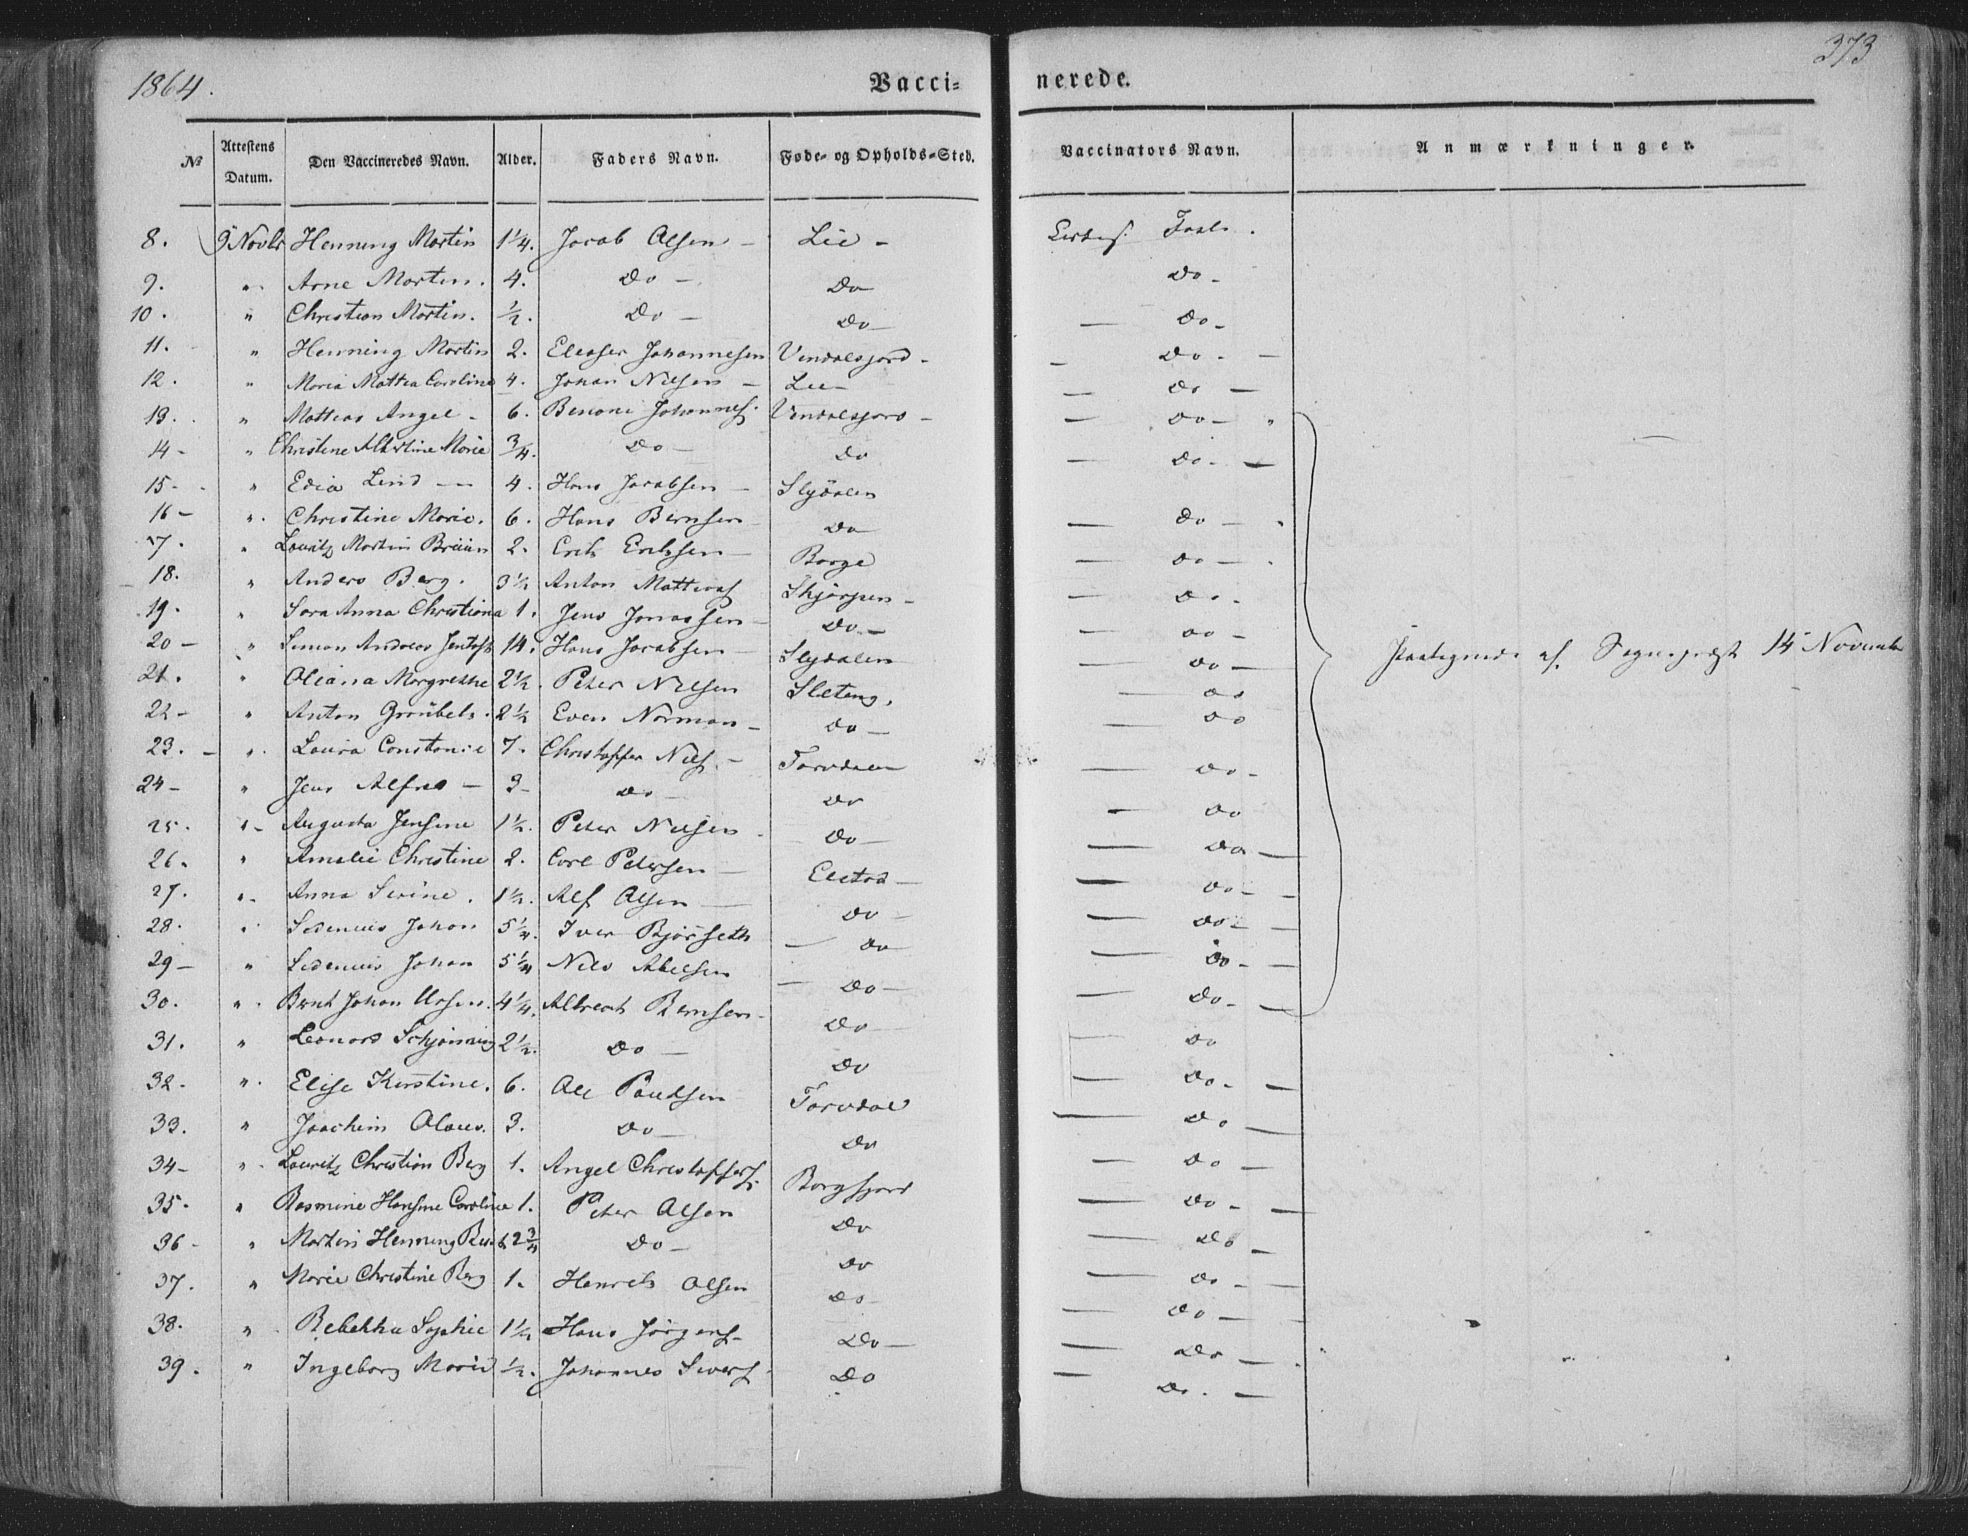 1864.
Vacci-
nerede.
373
No
Attestens Datum.
Den Vaccineredes Navn.
Alder.
Faders Navn.
Føde- og Opholds-Sted.
Vaccinators Navn.
Anmærkninger.
8. 9 Novbr Henning Martin 1 1/4. Jacob Olsen - Lie -
9. " Arne Morten. 4. Do - Do Do -
10. " Christian Martin. 1/2. Do - Do - Do -
11. " Henning Martin 2. Eleaser Johannesen Vendalsjord - Do -
12. " Maria Mattea Caroline 4. Johan Nilsen - Lie - Do -
13. " Mattias Angel - 6. Benoni Johannes. Vendalsjord - Do -
14 - " Christine Albertine Marie 3/4. Do - Do Do -
15 - " Edia Lind - 4. Hans Jacobsen - Slydalen
16 - " Christine Marie. 6. Hans Bernsen - Do - Do -
17. " Lauritz Martin Bruun 2. Erik Eriksen - Borge Do -
18. " Anders Berg. 3 1/2 Anton Mattias Skjørpen - Do -
19. " Sara Anna Christiana 1. Jens Jonassen - Do - Do -
20 - " Simon Andreas 14. Hans Jacobsen - Slydalen Do -
21. " Oliana Margrethe 2 1/2. Peter Nilsen Sleteng. Do
22 - " Anton 2 1/2 Even Norman - Do - Do
23. - " Laura Constanse 7. Christopher Nils. - Torvdalen Do -
24 - " Jens Alfred - 3 - Do - Do Do
25. " Augusta Jensine 1 1/2. Peter Nilsen - Do - Do -
26. " Amalie Christine 2. Carl Petersen - Elstad - Do -
27. " Anna Sivine. 1 1/2. Alf Olsen - Do - Do -
28. " Sidenius Johan 5 1/4. Iver Bjørseth - Do Do -
29 - " Sidenius Johan 5 1/4 Nils Abelsen - Do - Do -
30. " Bernt Johan 4 1/4. Albrect Bernsen - Do
31. " Leonard Schjønning 2 1/2. Do - Do Do
32 - " Elise Kirstine. 6. Ole Paulsen Torvdal Do -
33. " Joachim Olaus. 3. Do - Do Do -
34 - " Lauritz Christian Berg 1. Angel Christoffers. Borgfjord Do -
35. " Rasmine Hansine Caroline 1. Peter Olsen Do Do -
36 - " Martin Henning 2 3/4 Do - Do Do -
37. " Marie Christine Berg 1. Henrik Olsen Do - Do -
38. " Rebekka Sophie 1 1/2 Hans Jørgens - Do - Do -
39. " Ingeborg Marie 1/2. Johannes Sivers. Do Do -
af Sogneprest 14 November